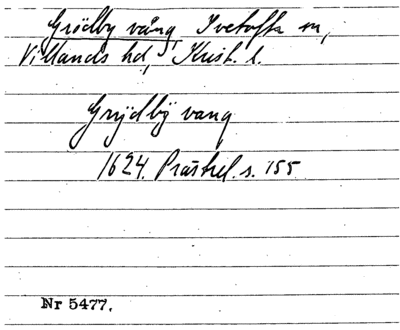 Grödby vång, Ivetofta sn,
Villands hd, Krist. l.
Grydbÿ vang
1624. Prästrel. s. 155
Nr 5477.